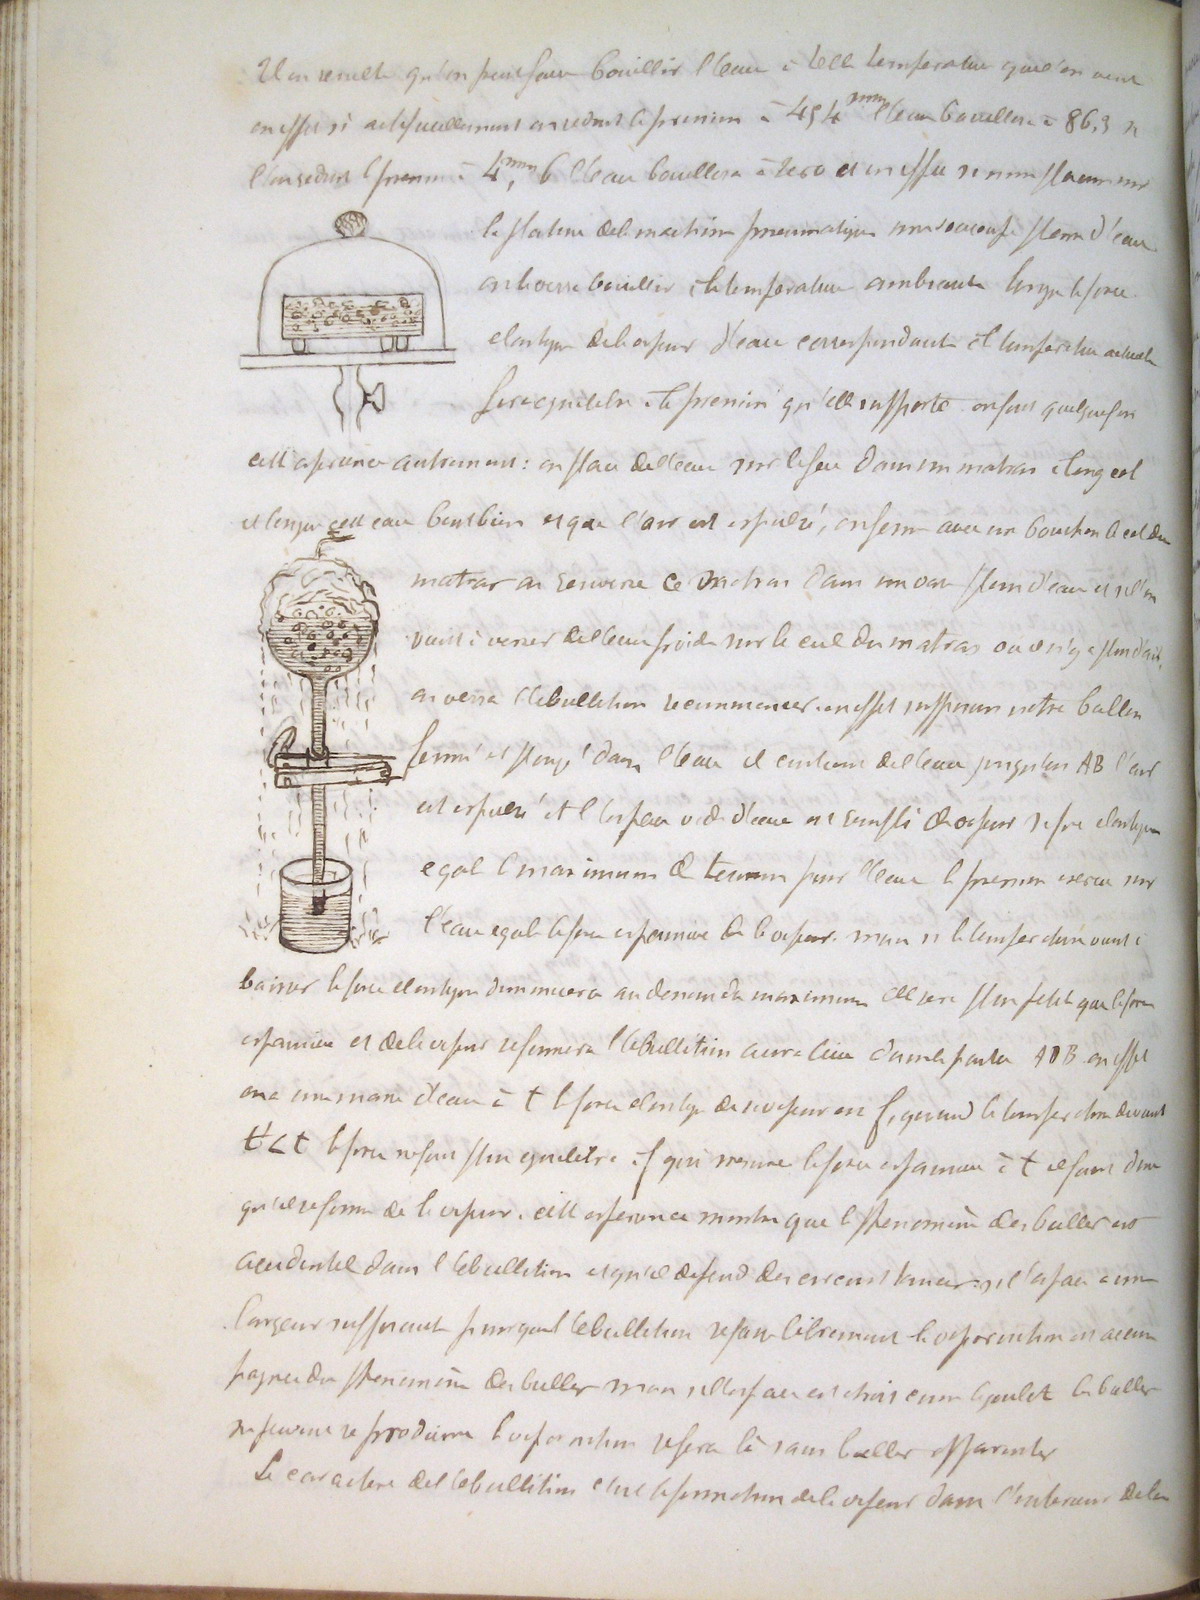 Il en resulte qu'on peut faire bouillir l'eau à telle temperature que l'on veut
en effet si artificiellement on reduit la pression à 454mm l'eau bouillera à 86,3 si
l'on reduit la pression à 4mm,6 l'eau bouillera à zero et en effet si nous placons sur
la platine de la machine pneumatique une soucoupe pleine d'eau
on la verra bouillir à la temperature ambiante lorsque la force
elastique de la vapeur d'eau correspondante à la temperature actuelle
fera equilibre à la pression qu'elle supporte. on fait quelquefois
cette experience autrement: on place de l'eau sur le feu dans un matras à long col
et lorsque cette eau bout bien et que l'air est expulsé, on ferme avec un bouchon le col du
matras on renverse ce matras dans un vase plein d'eau et si l'on
vient à verser de l'eau froide sur le cul du matras où il n'y a plus d'air,
on verra l'ebullition recommencer. en effet supposons notre ballon
fermé et plongé dans l'eau il contient de l'eau jusqu'en AB l'air
est expulsé et l'espace vide d'eau est rempli de vapeur sa force elastique
egale le maximum de tension pour l'eau la pression exercée sur
l'eau egale la force expansive de la vapeur. mais si la temperature vient à
baisser la force elastique diminuera au dessous du maximum elle sera plus petite que la force
expansive et de la vapeur se formera l'ebullition aura lieu dans la partie ADB en effet
on a une masse d'eau à t la force elastique de sa vapeur est f, quand la temperature devient
t'<t la force ne fait plus equilibre à f qui mesure la force expansive à t il faut donc
qu'il se forme de la vapeur. cette experience montre que le phenomène des bulles est
accidentel dans l'ebullition et qu'il depend des circonstances: si l'espace a une
largeur suffisante pour que l'ebullition se fasse librement la vaporisation est accom
pagnée du phenomène des bulles mais si l'espace est etroit comme le goulot les bulles
ne peuvent se produire la vaporisation se fera là sans bulles apparentes
Le caractere de l'ebullition c'est la formation de la vapeur dans l'interieur de la